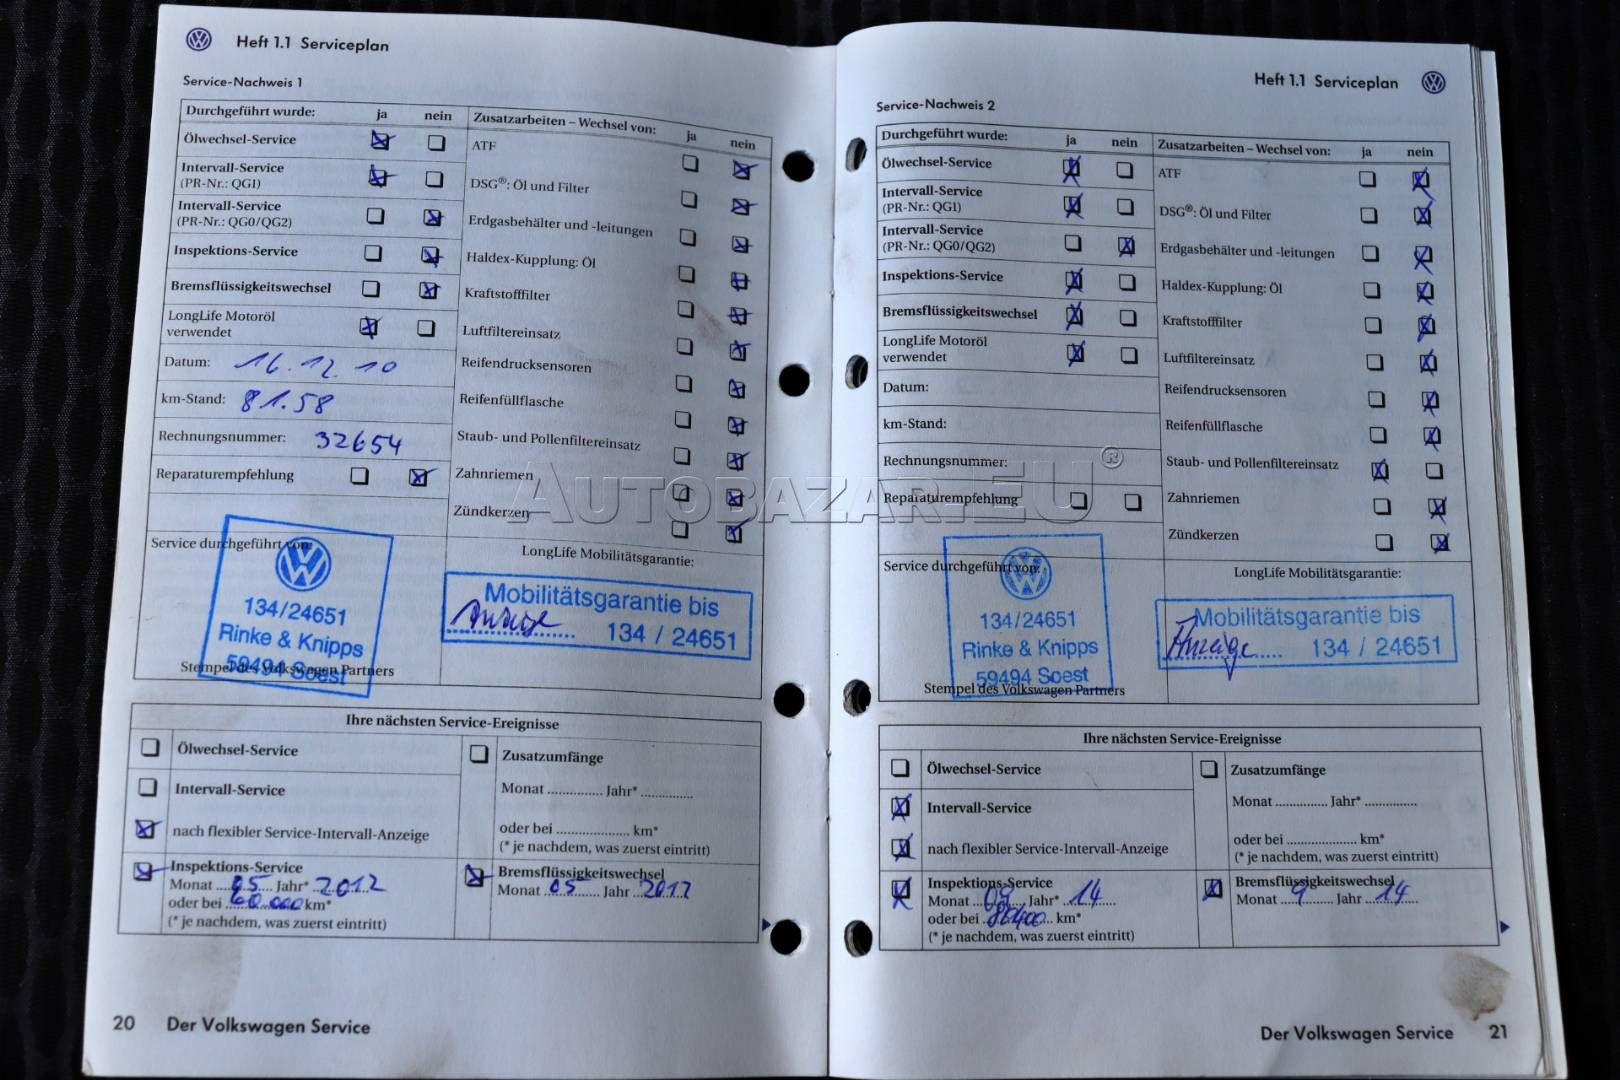 Heft 1.1 Serviceplan
Service-Nachweis 1
Durchgeführt wurde: ja nein
Ölwechsel-Service
Intervall-Service
(PR-Nr.: QG1)
Intervall-Service
(PR-Nr.: QG0/QG2)
Inspektions-Service
Bremsflüssigkeitswechsel
LongLife Motoröl
verwendet
Datum: 16.12.10
km-Stand: 81.58
Rechnungsnummer: 32654
Reparaturempfehlung
Zusatzarbeiten – Wechsel von: ja nein
ATF
DSG®: Öl und Filter
Erdgasbehälter und -leitungen
Haldex-Kupplung: Öl
Kraftstofffilter
Luftfiltereinsatz
Reifendrucksensoren
Reifenfüllflasche
Staub- und Pollenfiltereinsatz
Zahnriemen
Zündkerzen
Service durchgeführt von:
134/24651
Rinke & Knipps
59494 Soest
Stempel des Volkswagen Partners
LongLife Mobilitätsgarantie:
Mobilitätsgarantie bis
Anzeige 134 / 24651
Ihre nächsten Service-Ereignisse
Ölwechsel-Service
Intervall-Service
nach flexibler Service-Intervall-Anzeige
Inspektions-Service
Monat 05 Jahr* 2012
oder bei 60.000 km*
(* je nachdem, was zuerst eintritt)
Zusatzumfänge
Monat .............. Jahr* .............
oder bei .................... km*
(* je nachdem, was zuerst eintritt)
Bremsflüssigkeitswechsel
Monat 05 Jahr 2012
20 Der Volkswagen Service
Heft 1.1 Serviceplan
Service-Nachweis 2
Durchgeführt wurde: ja nein
Ölwechsel-Service
Intervall-Service
(PR-Nr.: QG1)
Intervall-Service
(PR-Nr.: QG0/QG2)
Inspektions-Service
Bremsflüssigkeitswechsel
LongLife Motoröl
verwendet
Datum:
km-Stand:
Rechnungsnummer:
Reparaturempfehlung
Zusatzarbeiten – Wechsel von: ja nein
ATF
DSG®: Öl und Filter
Erdgasbehälter und -leitungen
Haldex-Kupplung: Öl
Kraftstofffilter
Luftfiltereinsatz
Reifendrucksensoren
Reifenfüllflasche
Staub- und Pollenfiltereinsatz
Zahnriemen
Zündkerzen
Service durchgeführt von:
134/24651
Rinke & Knipps
59494 Soest
Stempel des Volkswagen Partners
LongLife Mobilitätsgarantie:
Mobilitätsgarantie bis
Anzeige 134 / 24651
Ihre nächsten Service-Ereignisse
Ölwechsel-Service
Intervall-Service
nach flexibler Service-Intervall-Anzeige
Inspektions-Service
Monat 09 Jahr* 14
oder bei km*
(* je nachdem, was zuerst eintritt)
Zusatzumfänge
Monat .............. Jahr* .............
oder bei .................... km*
(* je nachdem, was zuerst eintritt)
Bremsflüssigkeitswechsel
Monat 9 Jahr 14
Der Volkswagen Service 21
AUTOBAZAR.EU®